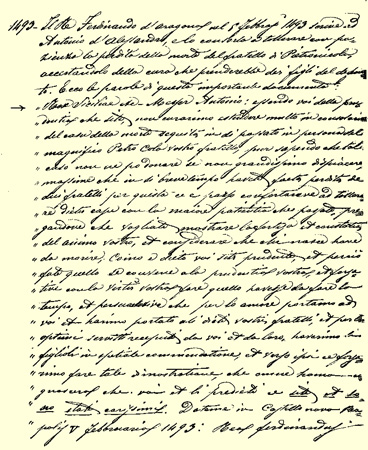 1493- Il Re Ferdinando d'Aragona nel 5 Febbraio 1493 scrive ad
Antonio d'Alessandro, e lo consola a tollerare con pa-
zienza la perdita della morte del fratello di Pietronicola,
accertandolo della cura che prenderebbe dei figli del defun-
to. Ecco le parole di questo important documento:
Rex Siciliae etc. Messer Antonio: essendo voi della pru-
dentia che siti, non curaremo extendere molto in consolarve
del caso della morte seguita in di passati in persona del
magnifico Petro Cola vostro fratello, pur sapendo che tale
caso non ve po donare se non grandissimo dispiacere
maxime che in di breve tempo haveti facta perdita de
duj fratelli per questo ce e parso confortarve ad tollera-
re dicto caso con la maiore patientia che poxati, pre-
gandove che vogliate mostrare la forteza et constantia
del animo vostro, et considerare che chi nasce have
da morire. Como e dicto voi siti prudente, et perciò
fati quello se convene ala prudentia vostra, et
con la vostra fare quello havesse da fare lo
tempo, et persuadeteve che per lo amore portamo ad
voi et hanno portato ali dicti vostri fratelli et per lo
optimi servitii recepiti da voi et da loro, haverimo li
figlioli in optima commendatione, et verso ipsi e
rimo fare tale dimostratione, che omne homo
che voi et li predicti ce siti et
stati carissimi. Datum in Castello novo Nea-
polis V Februarii 1493: Rex Ferdinandus